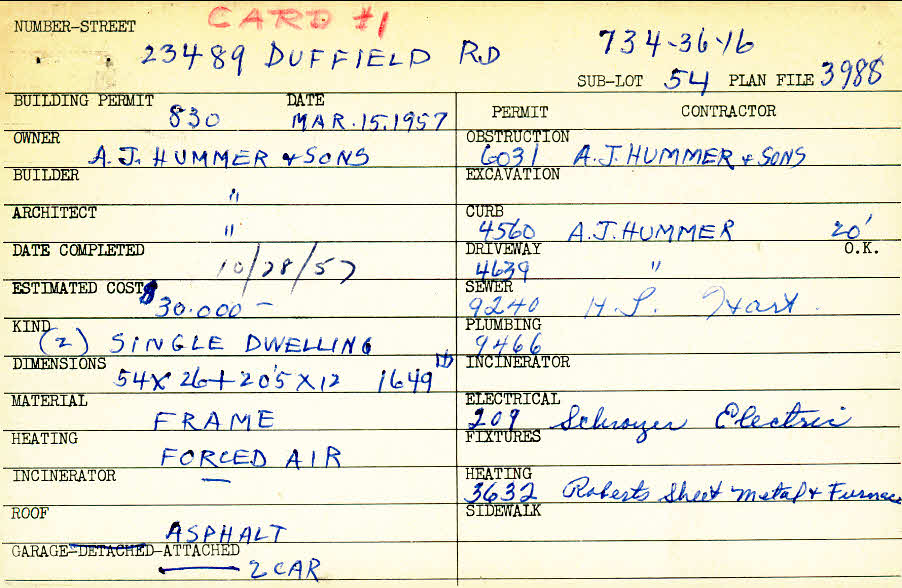 CARD #1
NUMBER-STREET
23489 DUFFIELD RD
734-36-16
SUB-LOT 54 PLAN FILE 3988
BUILDING PERMIT 830 DATE MAR. 15. 1957
OWNER A.J. HUMMER & SONS
BUILDER "
ARCHITECT "
DATE COMPLETED 10/28/57
ESTIMATED COST $30.000 —
KIND (2) SINGLE DWELLING
DIMENSIONS 54 X 26 + 20'5 X 12 1649
MATERIAL FRAME
HEATING FORCED AIR
INCINERATOR —
ROOF ASPHALT
GARAGE-DETACHED-ATTACHED
2 CAR
PERMIT CONTRACTOR
OBSTRUCTION
6031 A.J. HUMMER & SONS
EXCAVATION
CURB
4560 A.J. HUMMER 20'
DRIVEWAY O.K.
4639 "
SEWER
9240 H.L. Hart.
PLUMBING
9466
INCINERATOR
ELECTRICAL
209 Electric
FIXTURES
HEATING
3632 Roberts Sheet Metal & Furnace
SIDEWALK